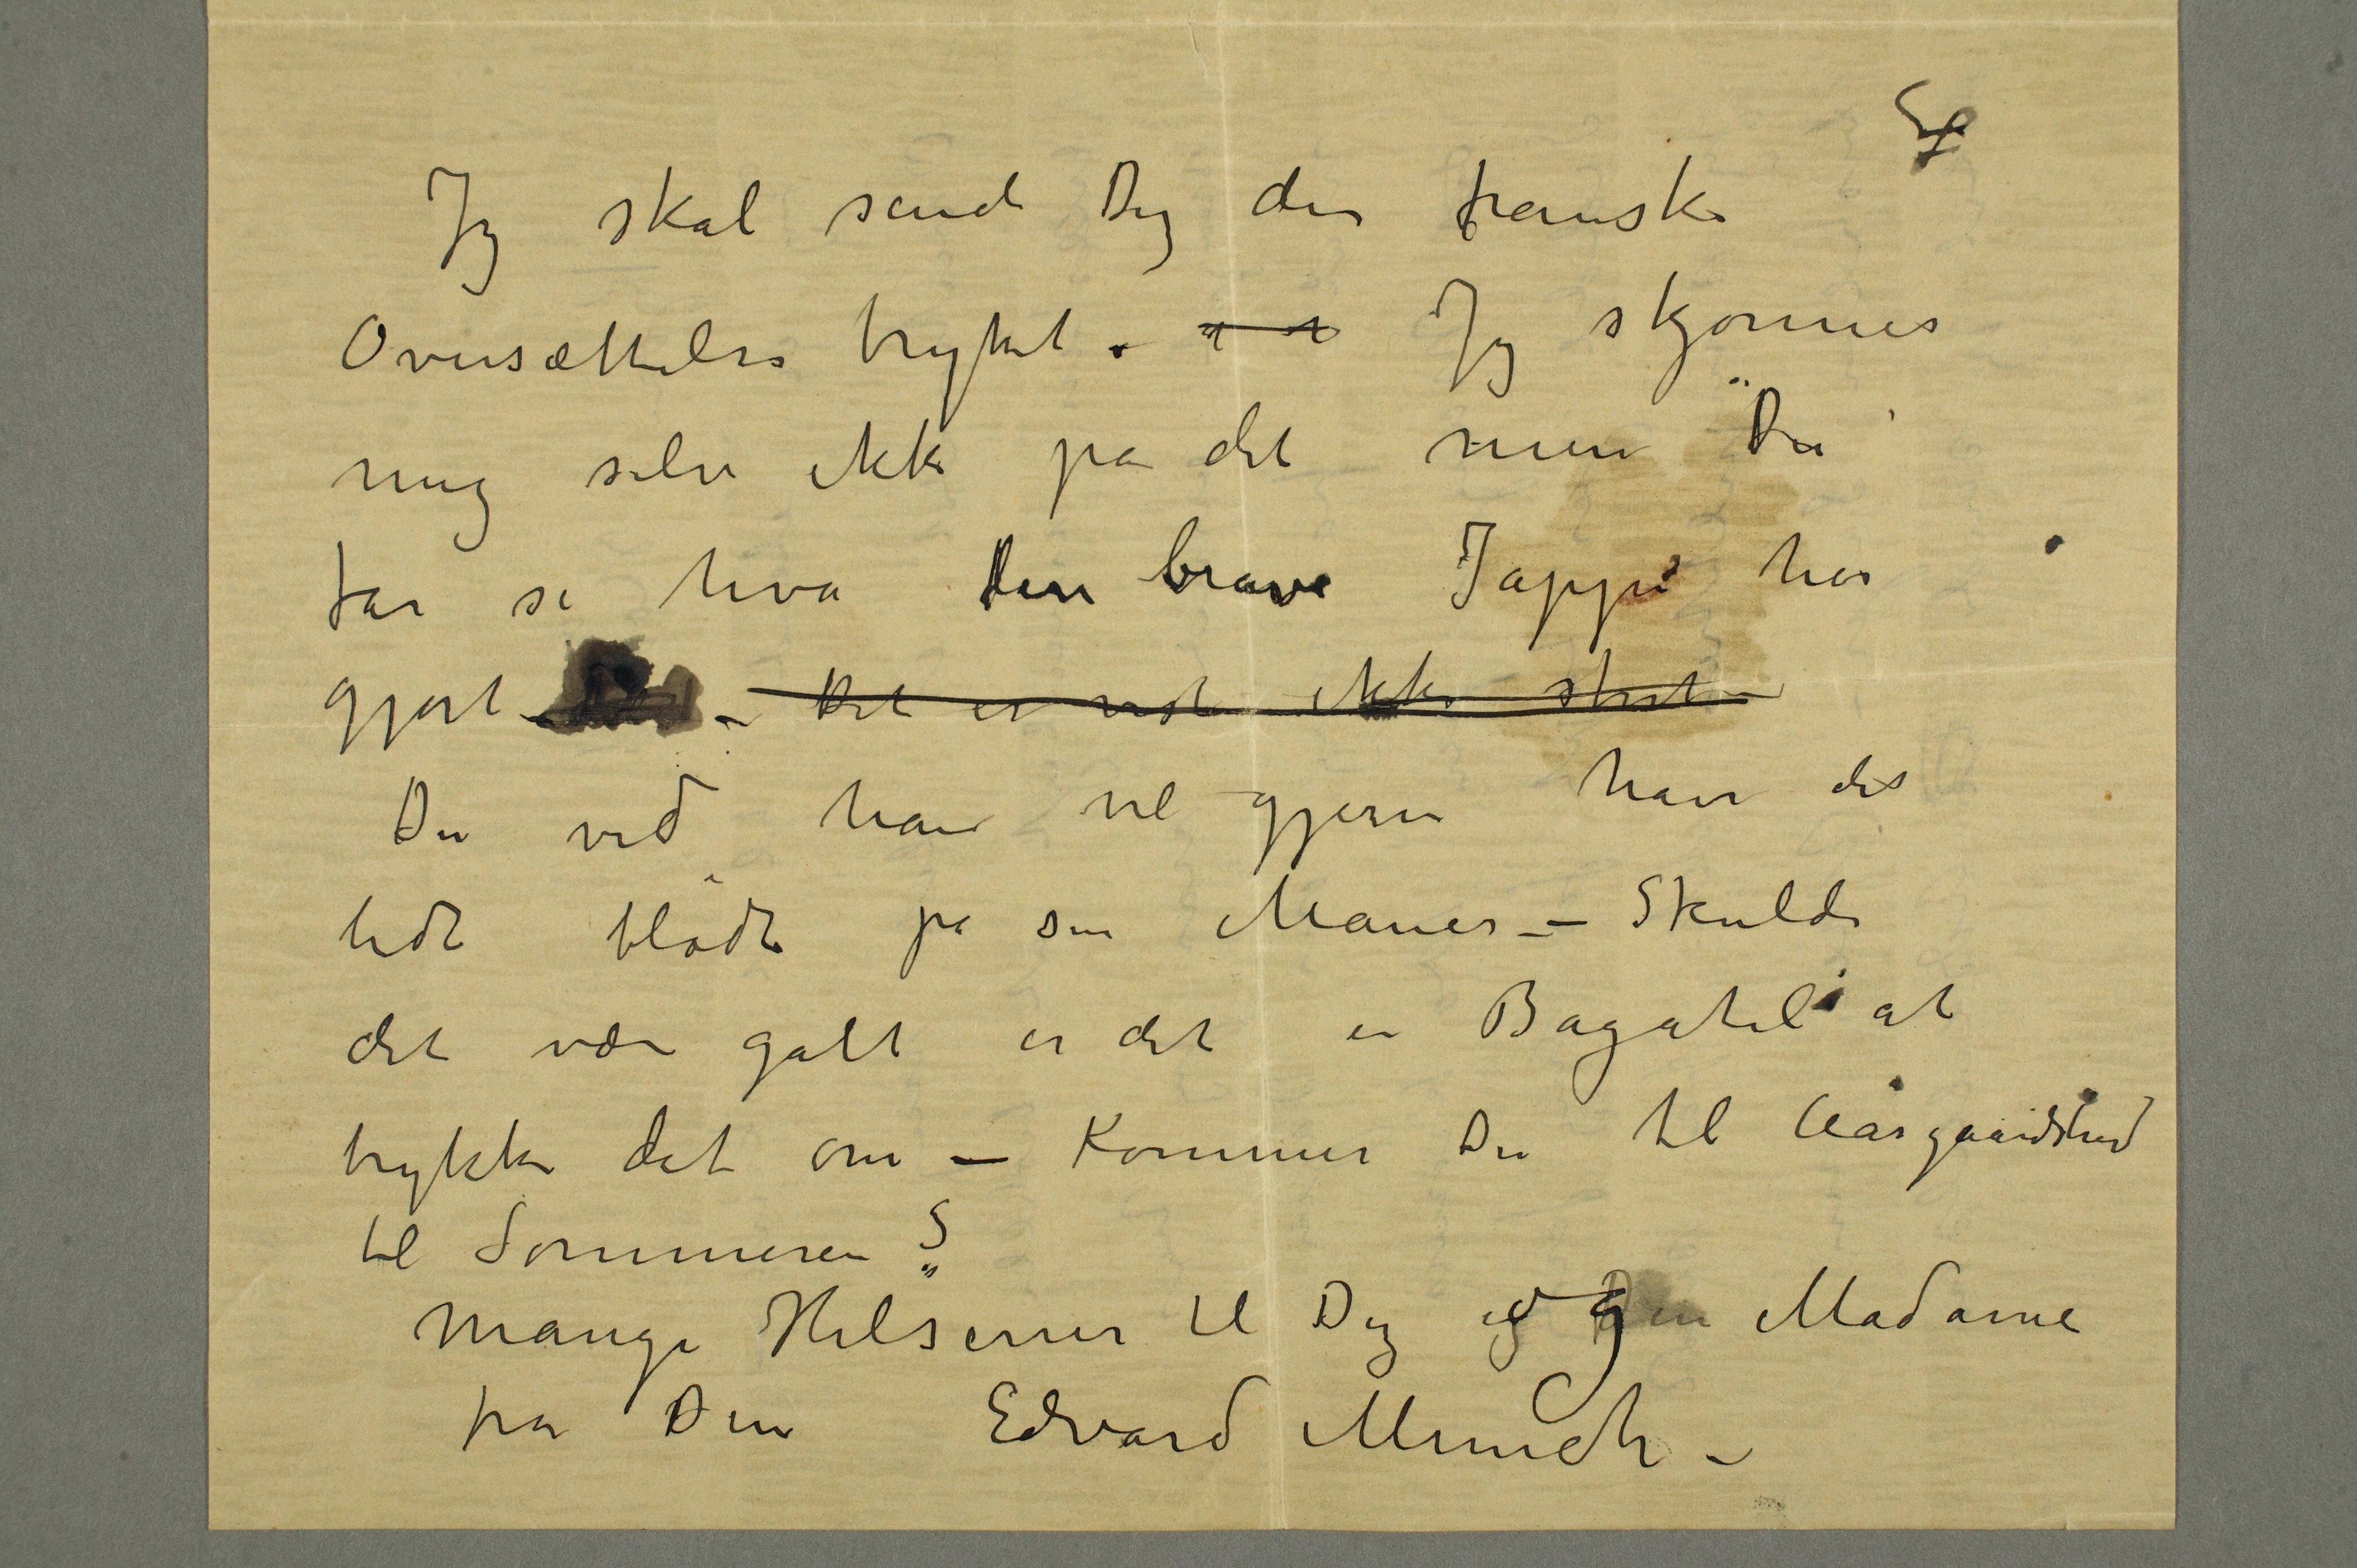 Jeg skal sende Dig den franske
Oversættelse trykket. Jeg skjønner
mig selv ikke på det men Du
får se hva den brave Jappe har
gjort – – Det er vist ikke
Du ved han vil gjerne have det
lidt blødt på sin Maner – – Skulde
det være galt er det en Bagatel at
trykke det om – Kommer Du til Aasgaardstrand
til Sommeren?
Mange Hilsener til Dig og Din Madame
fra Din Edvard Munch –